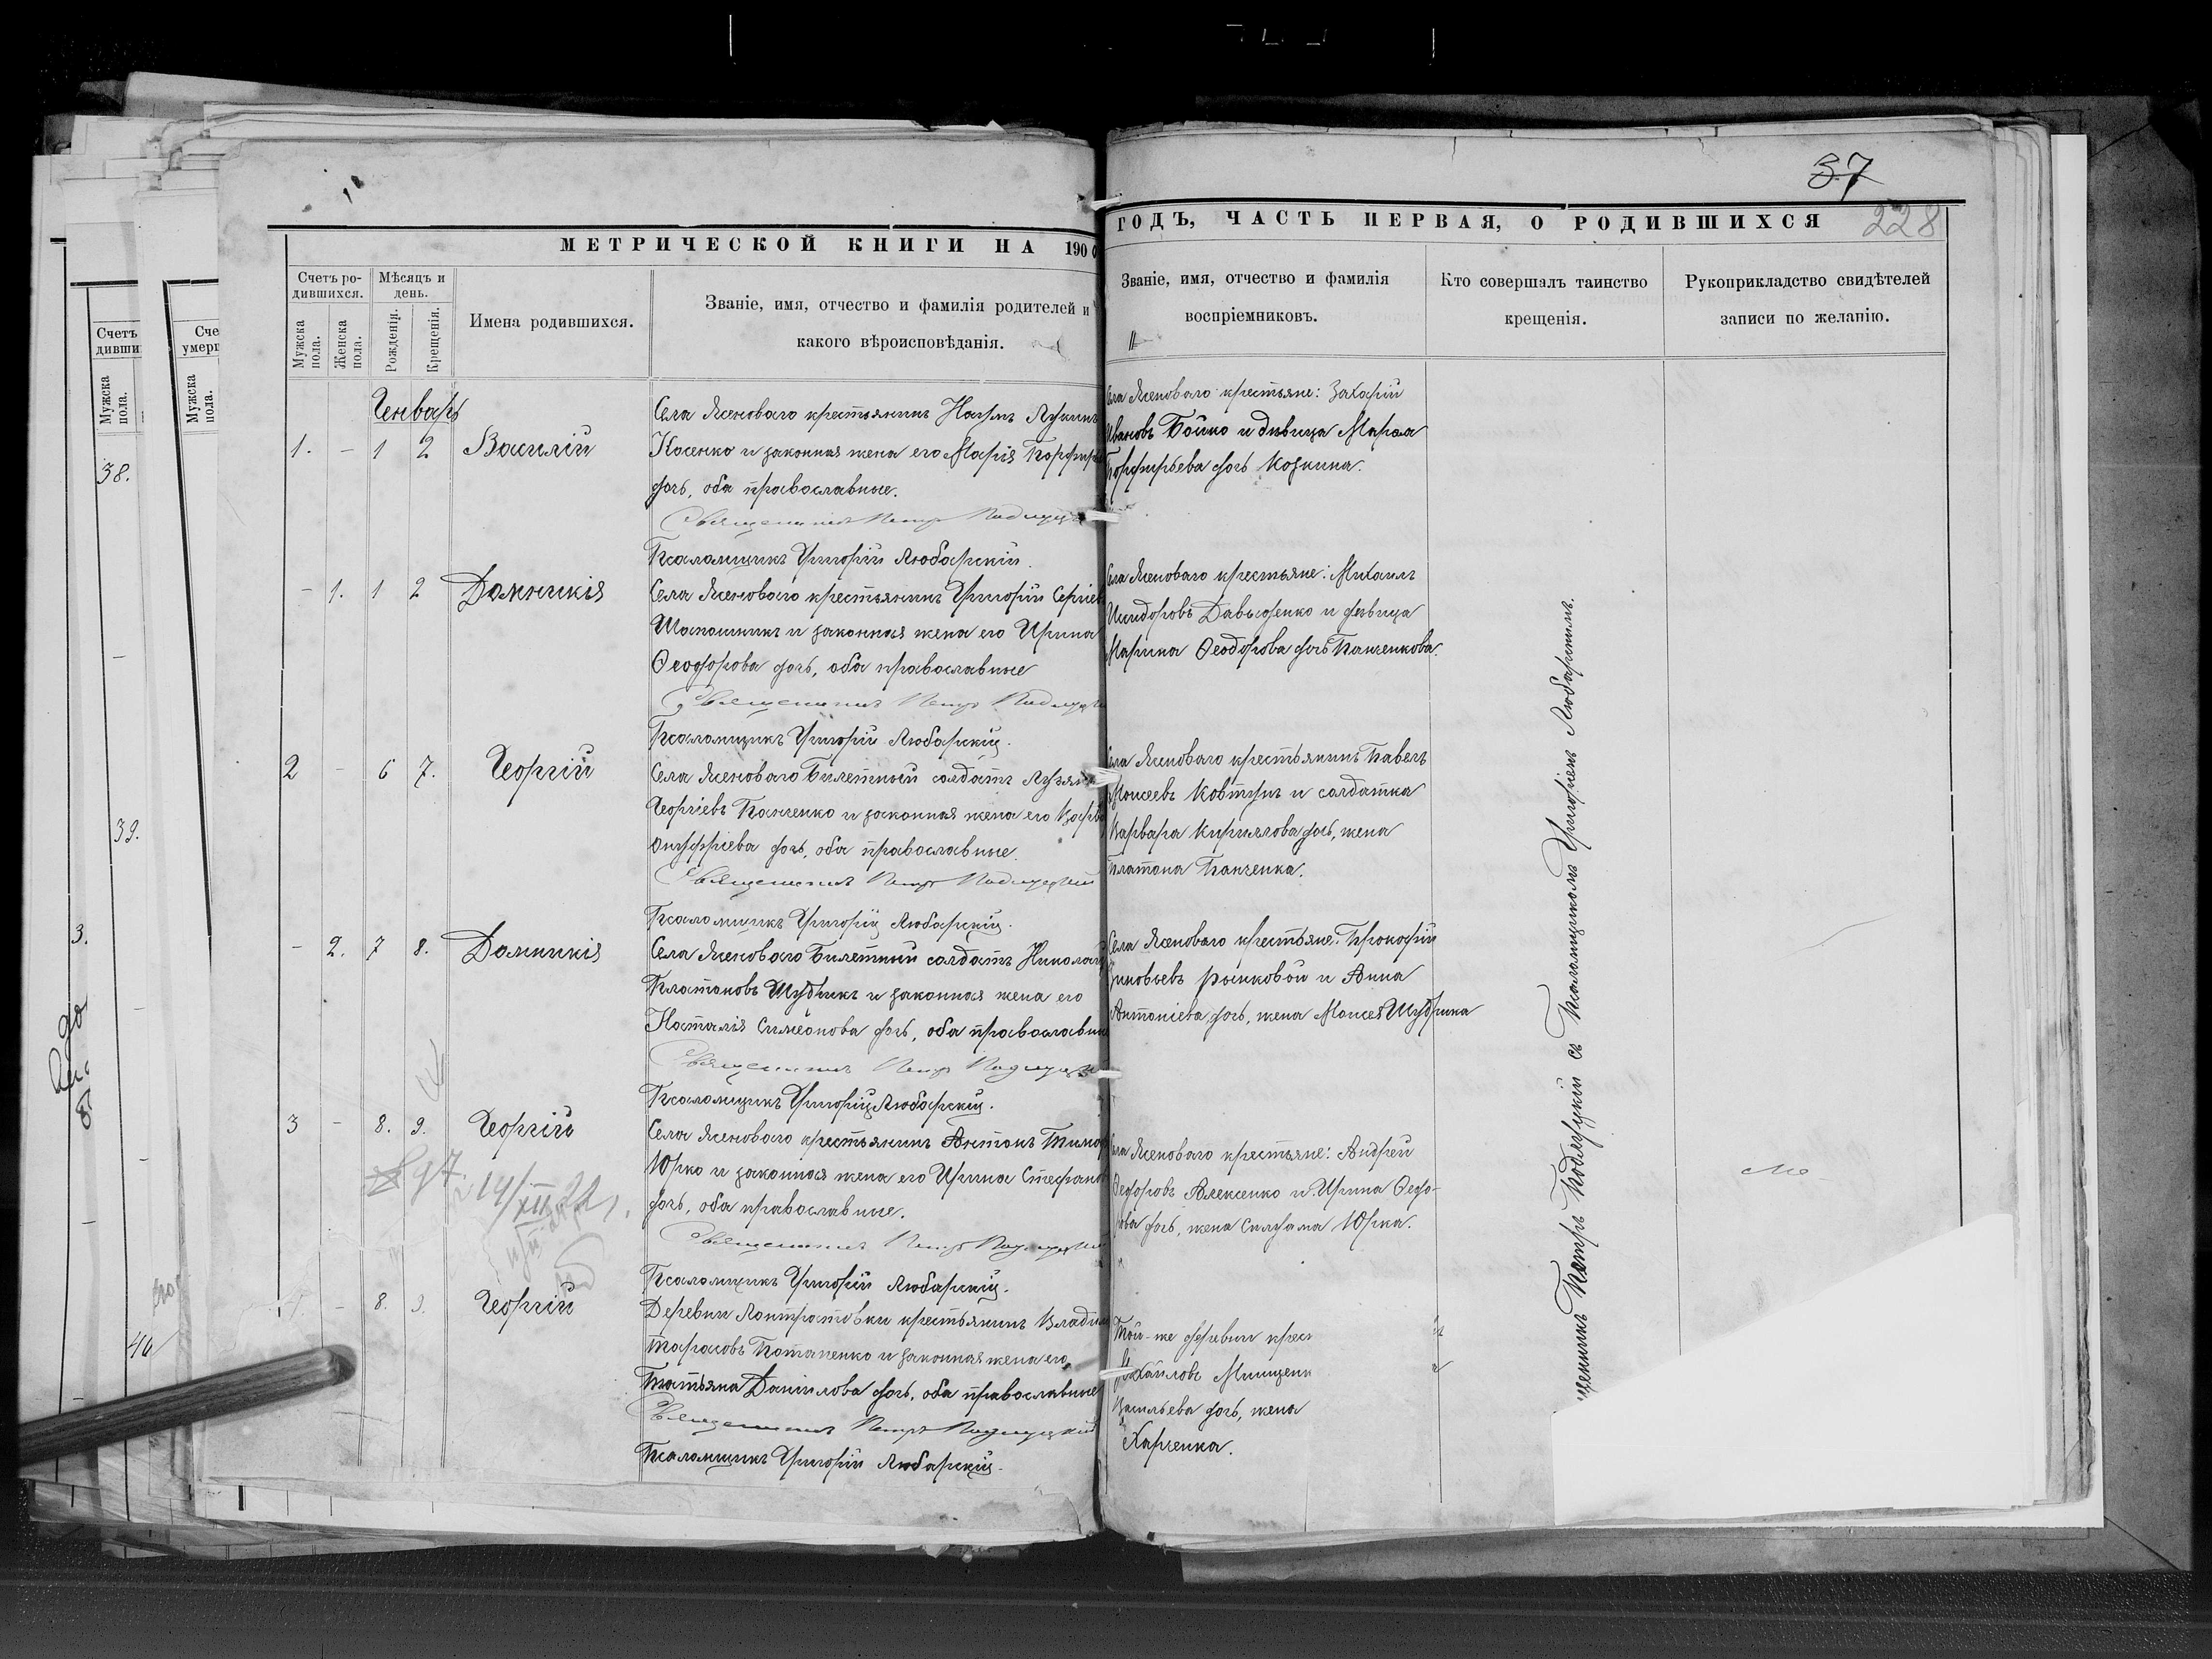 37
228
МЕТРИЧЕСКОЙ КНИГИ НА 190
ГОДЪ, ЧАСТЬ ПЕРВАЯ, О РОДИВШИХСЯ
Счетъ ро-
дившихся.
Мужска
пола.
Женска
пола.
Мѣсяцъ и
день.
Рожденія.
Крещенія.
Имена родившихся.
Званіе, имя, отчество и фамилія родителей и
какого вѣроисповѣданія.
Званіе, имя, отчество и фамилія
воспріемниковъ.
Кто совершалъ таинство
крещенія.
Рукоприкладство свидѣтелей
записи по желанію.
Генварь
1. - 1 2 Василій
Села Ясеноваго крестьянинъ Наумъ Лукинъ
Косенко и законная жена его Марія Порфирь
дочь, оба православные.
Священникъ Петръ
Псаломщикъ Григорій Любарскій.
Села Ясеноваго крестьяне: Захарій
Ивановъ Бойко и дѣвица Марѳа
Порфирьева дочь Козкина.
- 1. 1 2 Домникія
Села Ясеноваго крестьянинъ Григорій Сергіев
Шапошникъ и законная жена его Ирина
Ѳеодорова дочь, оба православные
Священникъ Петръ
Псаломщикъ Григорій Любарскій.
Села Ясеноваго крестьяне: Михаилъ
Исидоровъ Давыденко и дѣвица
Марина Ѳеодорова дочь Панченкова.
2 - 6 7. Георгій
Села Ясеноваго Билетный солдатъ
Георгіевъ Панченко и законная жена его Варва
Онуфріева дочь, оба православные.
Священникъ Петръ
Псаломщикъ Григорій Любарскій.
Села Ясеноваго крестьянинъ Павелъ
Моисеевъ Ковтунъ и солдатка
Варвара Кириллова дочь, жена
Платона Панченка.
- 2. 7 8. Домникія
Села Ясеноваго Билетный солдатъ Николай
Платоновъ Шудрикъ и законная жена его
Наталія Симеонова дочь, оба православны
Священникъ Петръ
Псаломщикъ Григорій Любарскій.
Села Ясеноваго крестьяне: Прокофій
Зиновьевъ Рынковой и Анна
Антоніева дочь, жена Моисея Шудрика
3 - 8. 9. Георгій
Села Ясеноваго крестьянинъ Антонъ Тимоф
Юрко и законная жена его Ирина Стефанов
дочь, оба православные.
Священникъ Петръ
Псаломщикъ Григорій Любарскій.
Села Ясеноваго крестьяне: Андрей
Ѳедоровъ Алексенко и Ирина Ѳедо-
рова дочь, жена Юрка.
- 8. 9. Георгій
Деревни крестьянинъ Влади
Тарасовъ Потапенко и законная жена его
Татьяна Даніилова дочь, оба православные
Священникъ Петръ
Псаломщикъ Григорій Любарскій.
Той-же деревни крес
Михайловъ Мищенк
Васильева дочь, жена
Харченка.
щенникъ Петръ Подлуцкій съ Псаломщикомъ Григоріемъ Любарскимъ.
Счетъ
дивши
Мужска
пола.
38.
39.
40
3.
Сче
умерш
Мужска
пола.